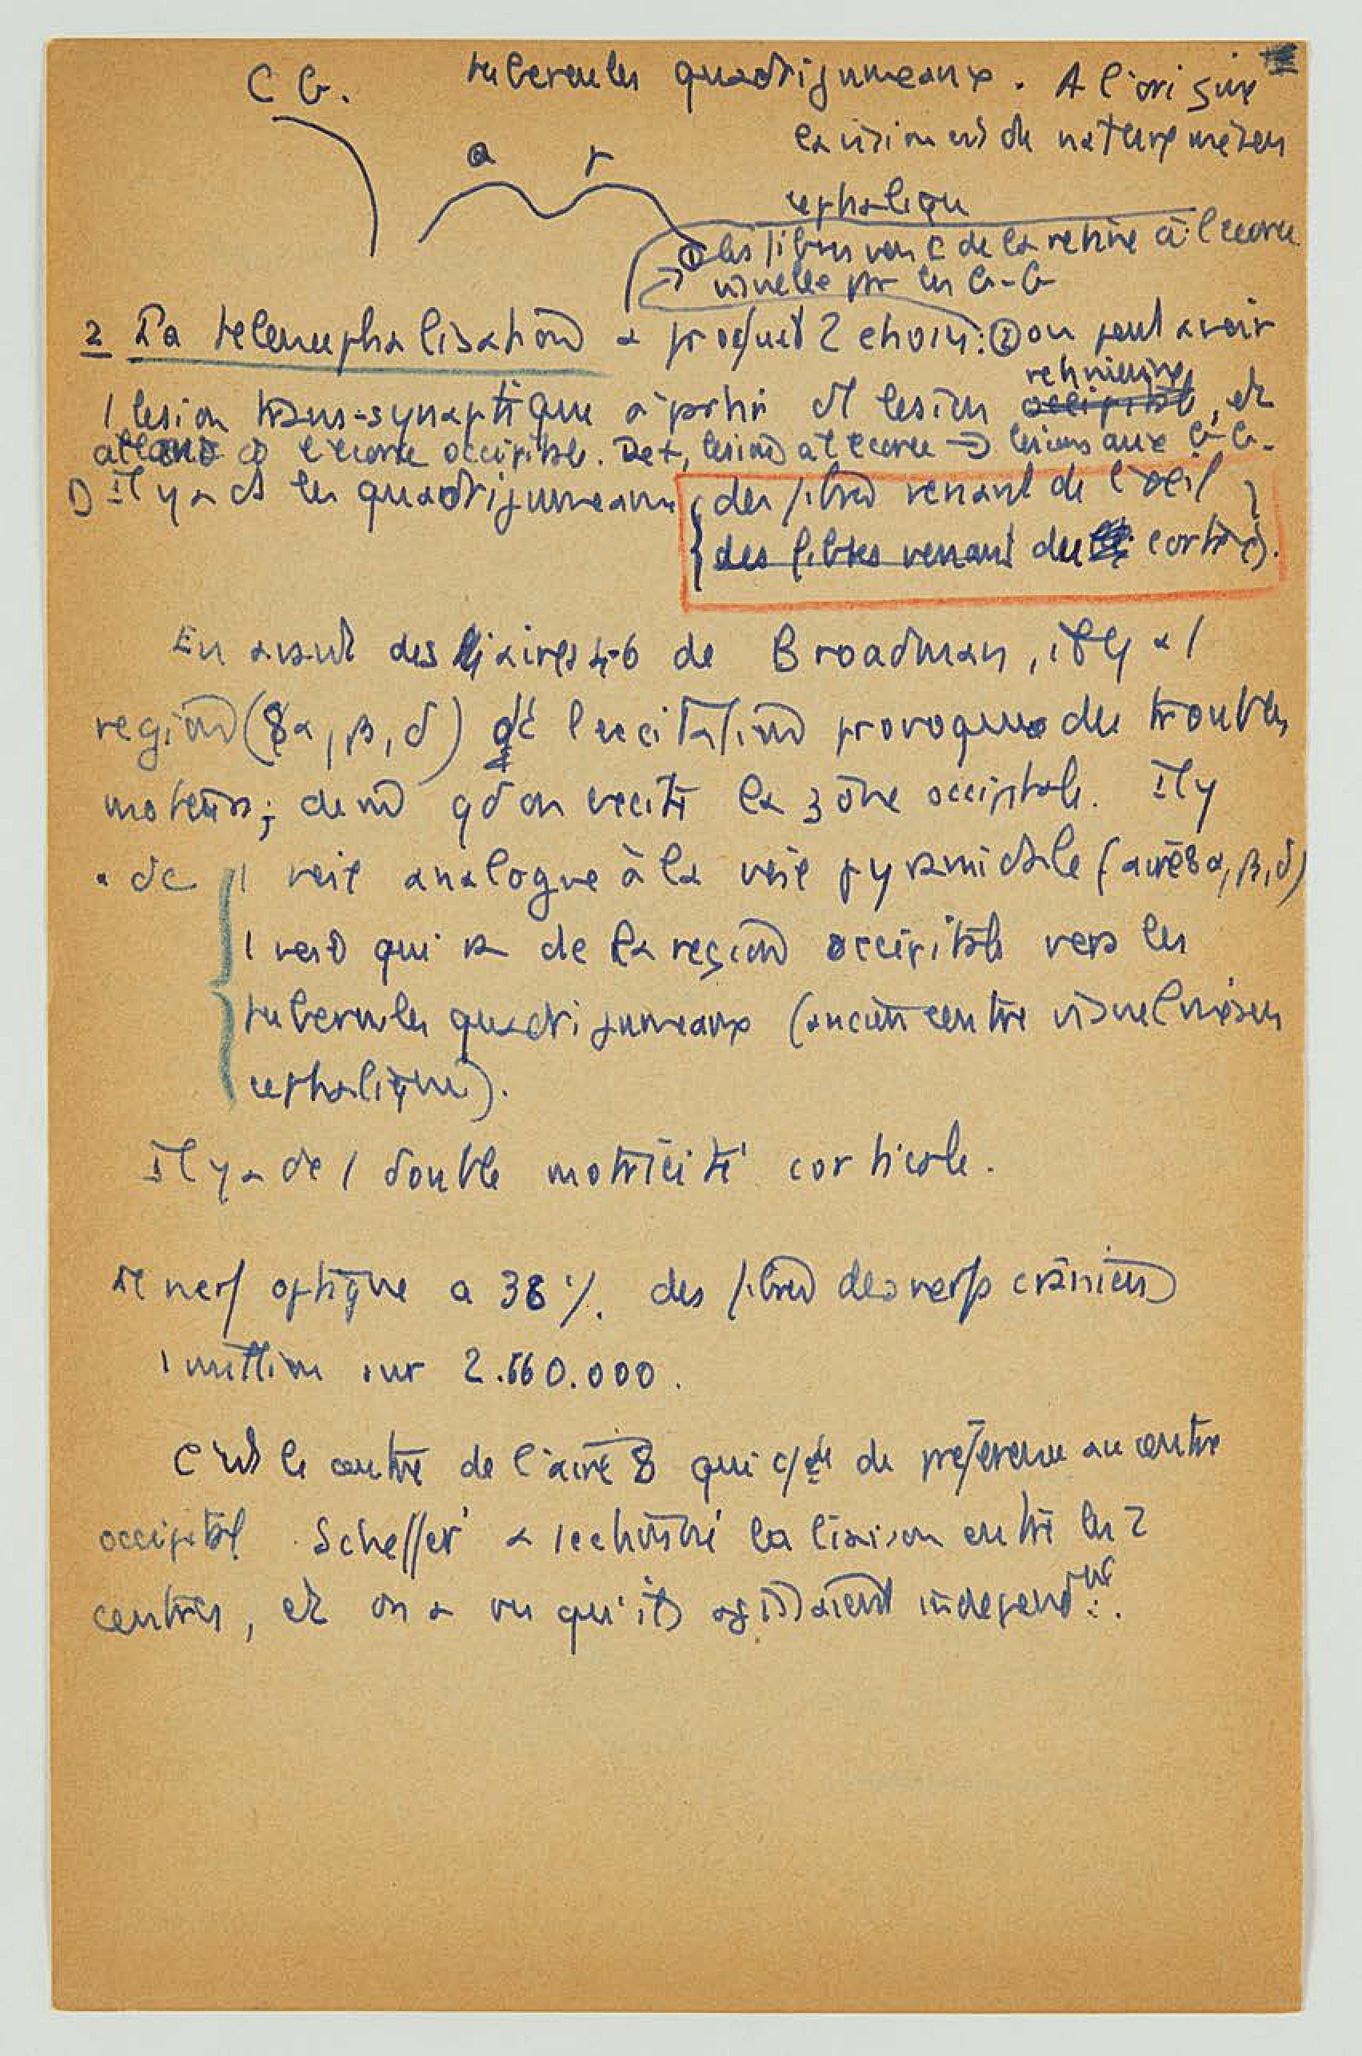 C G. tubercules quadrijumeaux. A l'origine
la vision est de nature mésen
céphalique
a r
① les fibres vont de la rétine à l'écorce
→ visuelle par les G-G
2 La télencéphalisation a produit 2 choses: ② on peut avoir
1 lesion trans-synaptique à partir d'1 lesion rétinienne, et
allant à l'écorce occipitale. De +, lesion à l'écorce → lesions aux G-G.
1) Il y a ds les quadrijumeaux { des fibres venant de l'œil }
{ des fibres venant du cortex }.
En avant des aires 4-6 de Broadman, il y a 1
region (8α, β, δ) dt l'excitation provoque des troubles
moteurs; de m̂ qd on excite la zône occipitale. Il y
a dc 1 voie analogue à la voie pyramidale (aire 8α, β, δ)
1 voie qui va de la region occipitale vers les
tubercules quadrijumeaux (ancien centre visuel mésen
céphalique).
Il y a dc 1 double motricité corticale.
Le nerf optique a 38 %. des fibres des nerfs crâniens
1 million sur 2.560.000.
C'est le centre de l'aire 8 qui cde de préférence au centre
occipital. Scheffer a recherché la liaison entre les 2
centres, et on a vu qu'ils agissaient independt.